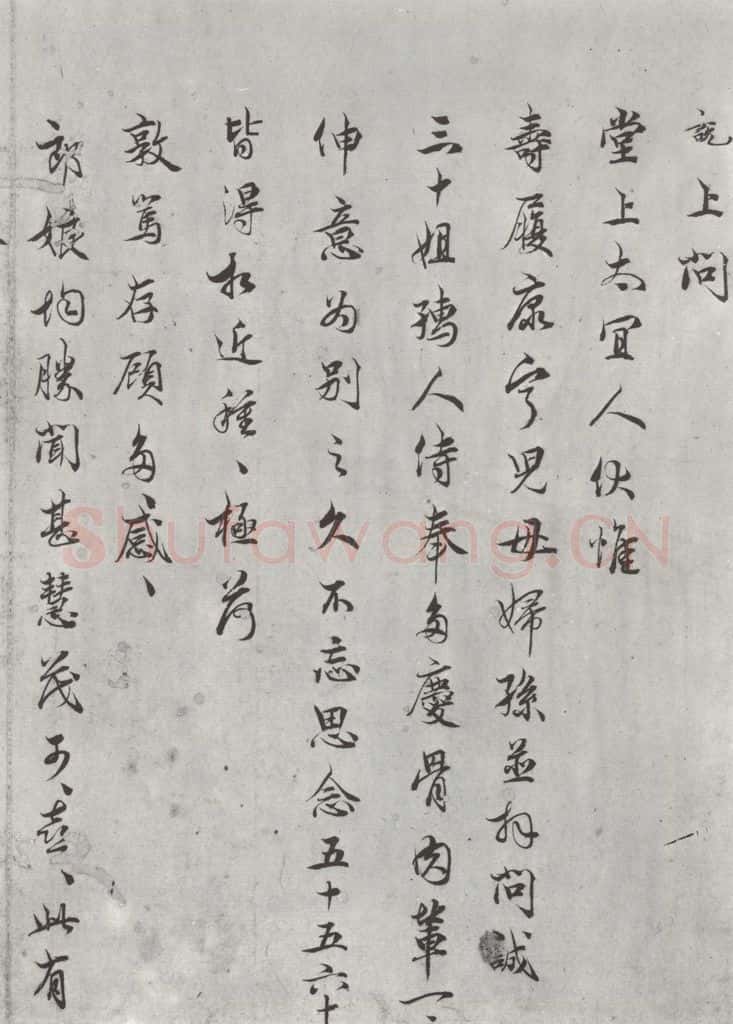 說上問
堂上太宜人伏惟
壽履康寧兒母婦孫並拜問誠
三十姐孺人侍奉多慶骨肉輩一、
伸意為別之久不忘思念五十五六十
皆得相近種、極荷
敦篤存顧多、感、
郎娘均勝聞甚慧茂可、喜、此有
Shufawang.CN